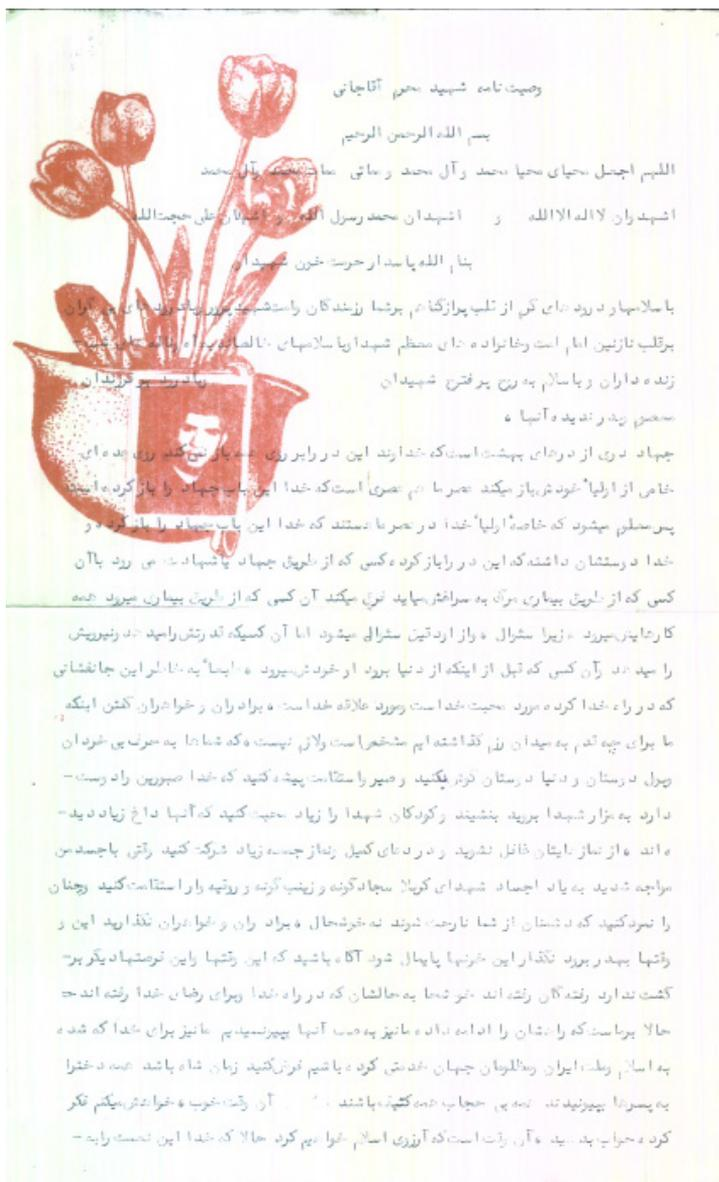 وصیت نامه شهید محرم آقاجانی
بسم الله الرحمن الرحیم
اللهم اجعل محیای محیا محمد و آل محمد و مماتی ممات محمد و آل محمد
اشهد ان لااله الاالله و اشهدان محمد رسول الله و اشهدان علی حجت‌الله
بنام الله پاسدار حرمت خون شهیدان
با سلامها و درود های گرم از قلب پرازگناهم برشما رزمندگان وامت شهید پرور و با درود های بی کران
برقلب نازنین امام امت وخانواده های معظم شهدا و باسلامهای خالصانه به
زنده داران و باسلام به روح پرفتوح شهیدان و با درود بر فرزندان
معصوم پدر ندیده آنها .
جهاد دری از درهای بهشت است که خداوند این در را بر روی همه باز نمی‌کند روی عده ای
خاص از اولیاء خودش باز میکند عصر ما هم عصری است که خدا این باب جهاد را باز کرده است
پس معلوم میشود که خاصهٔ اولیاء خدا در عصر ما هستند که خدا این باب جهاد را باز کرده و
خدا دوستشان داشته که این در را باز کرده کسی که از طریق جهاد باشهادت می رود باآن
کسی که از طریق بیماری مرگ به سراغش میاید فرق میکند آن کسی که از طریق بیماری میرود همه
کارهایش میرود . زیرا سئوال . و از او دقیق سئوال میشود اما آن کسیکه قدرتش رامید هد ونیرویش
را مید هد وآن کسی که قبل از اینکه از دنیا برود از خودش میرود . به خاطر این جانفشانی
که در راه خدا کرده مورد محبت خدا است ومورد علاقه خدا است . برادران و خواهران گفتن اینکه
ما برای چه قدم به میدان رزم گذاشته ایم مشخص است ولازم نیست . که شماها به حرف بی خردان
وپول دوستان و دنیا دوستان گوش نکنید و صبر واستقامت پیشه کنید که خدا صبورین رادوست -
دارد به مزار شهدا بروید بنشینید و کودکان شهدا را زیاد محبت کنید که آنها داغ زیاد دید -
ه اند . از نماز هایتان غافل نشوید و در دعای کمیل ونماز جمعه زیاد شرکت کنید وقتی باجسد من
مواجه شدید به یاد اجساد شهدای کربلا سجادگونه و زینب گونه و رقیه وار استقامت کنید وچنان
را نمود کنید که دشمنان از شما ناراحت شوند نه خوشحال . براد ران و خواهران نگذارید این و
وقتها بهدر برود نگذار این خونها پایمال شود آگاه باشید که این وقتها واین فرصتها دیگر بر -
گشت ندارد رفتگان رفته اند خوشحا به حالشان که در راه خدا وبرای رضای خدا رفته اند -
حالا برماست که راهشان را ادامه داده مانیز به صف آنها بپیوندیم مانیز برای خدا که شده
به اسلام وملت ایران ومظلومان جهان خدمتی کرده باشیم فرض کنید زمان شاه باشد همه دخترا
به پسرها بپیوندند همه بی حجاب همه کثیف باشند آن وقت خوب . خواهش میکنم فکر
کرده جواب بدهید . آن وقت است که آرزوی اسلام خواهیم کرد حالا که خدا این نعمت را به -